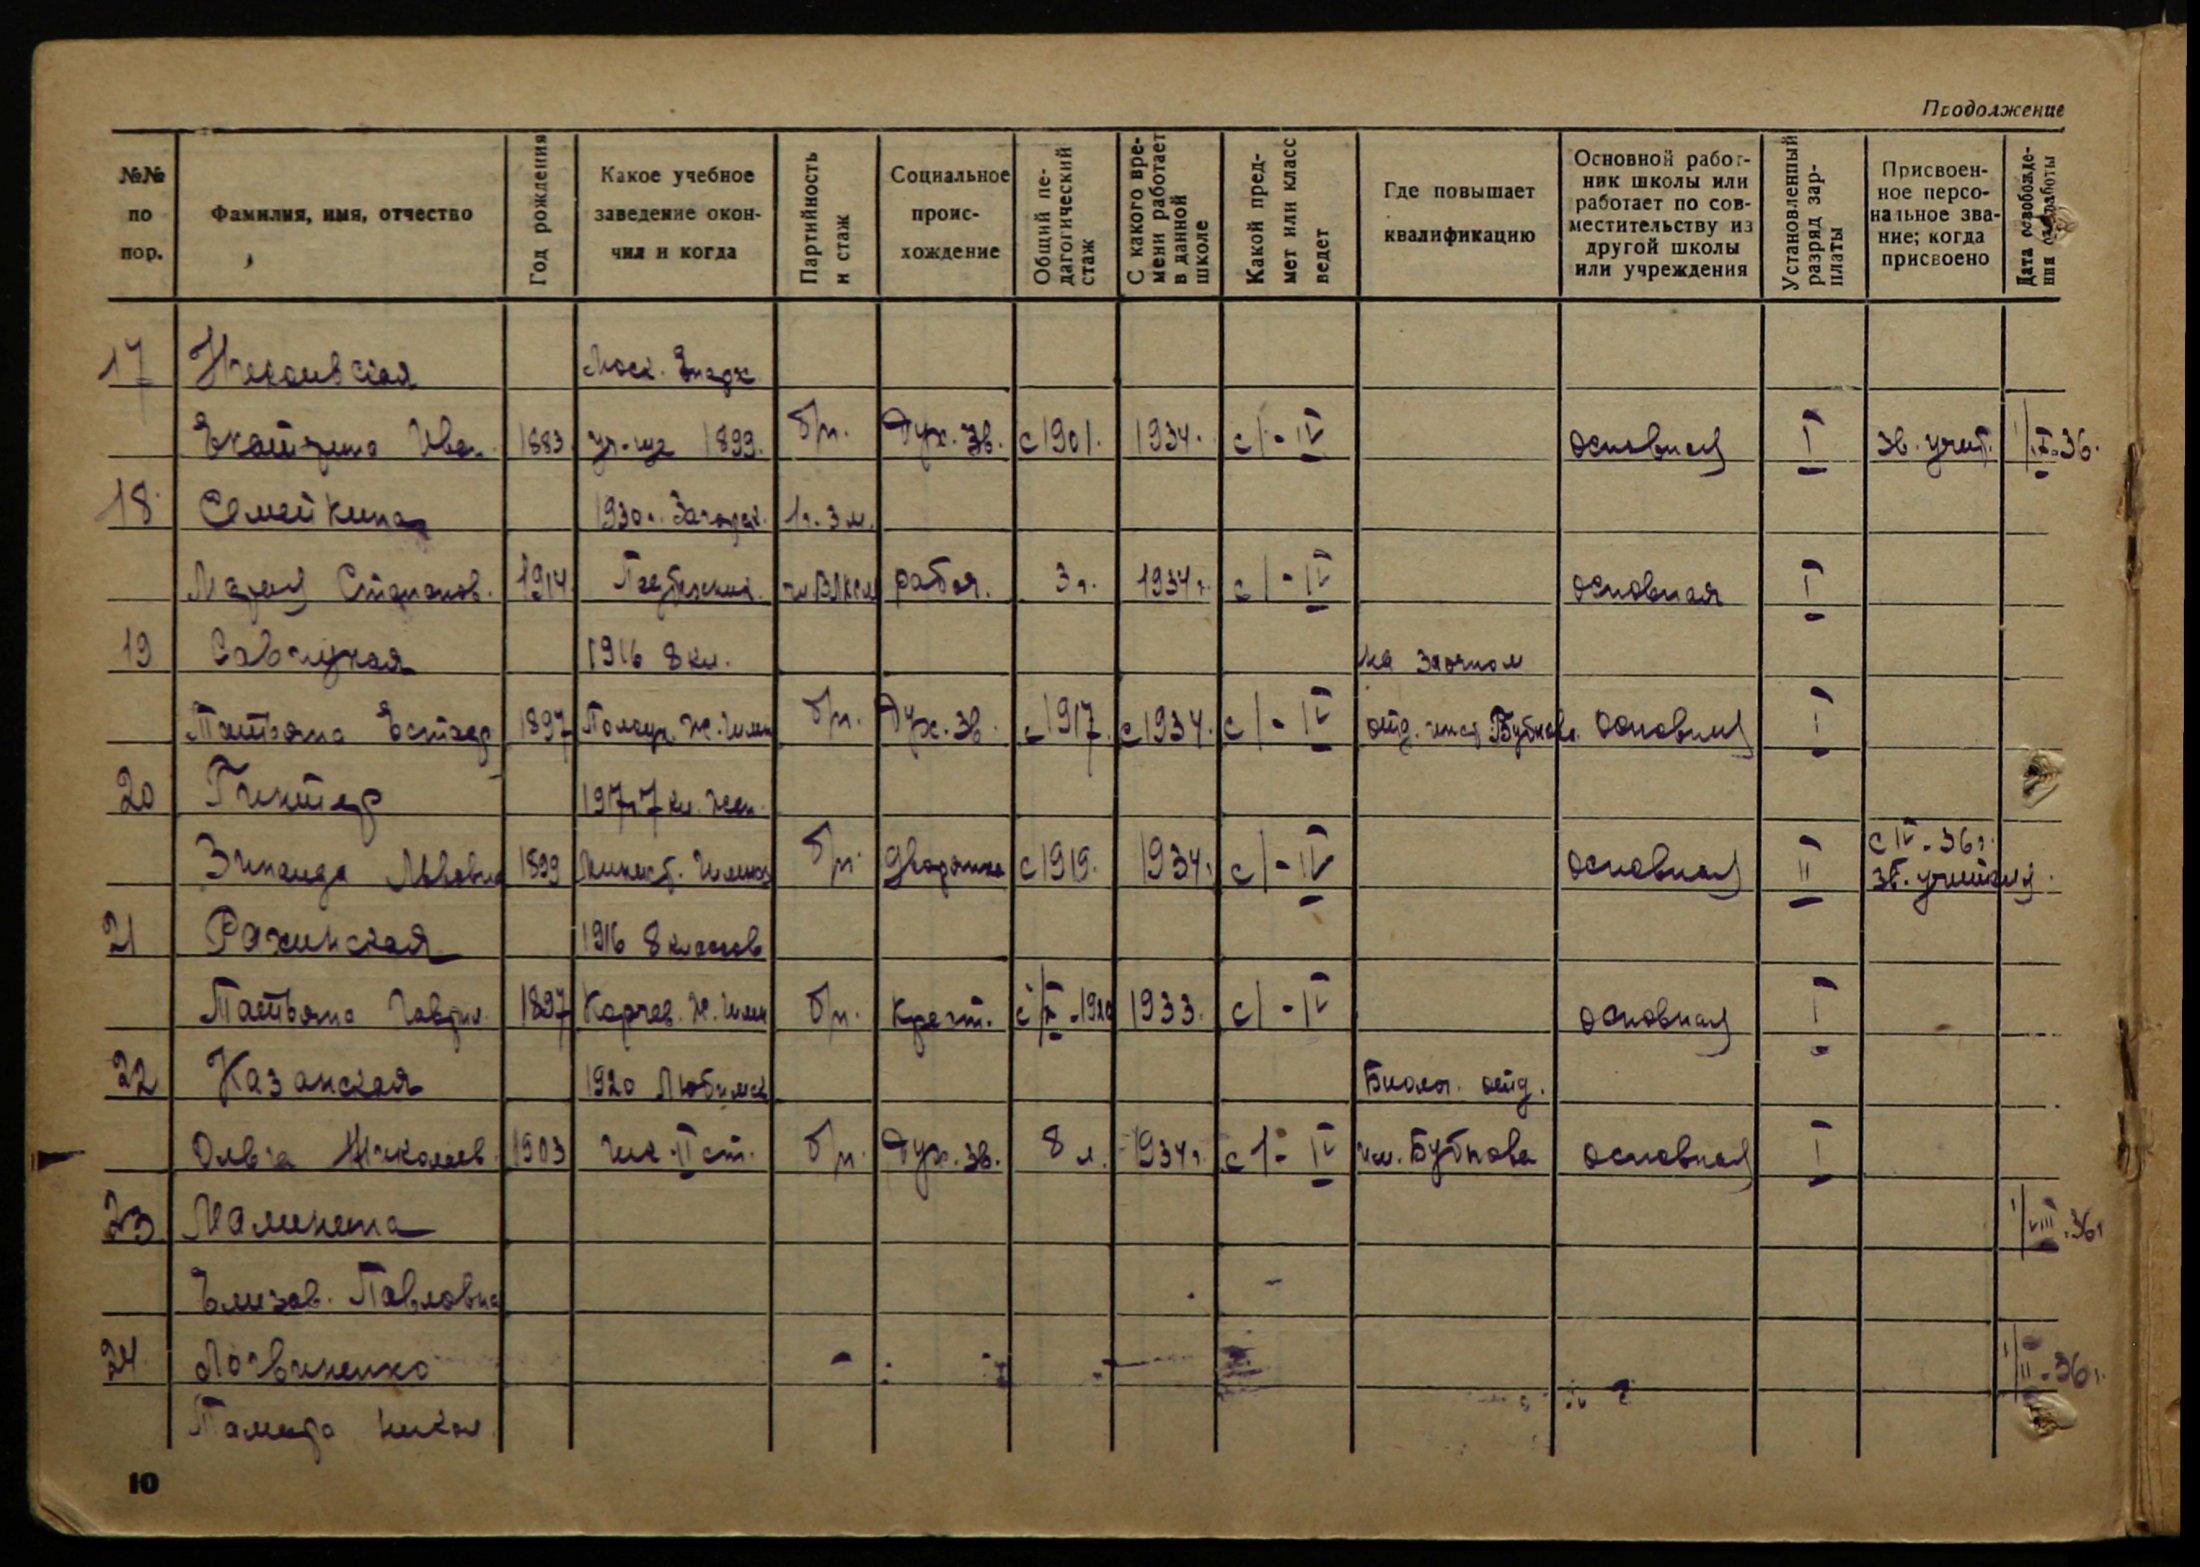 Продолжение
№№ по пор. Фамилия, имя, отчество Год рождения Какое учебное заведение окончил и когда Партийность и стаж Социальное происхождение Общий педагогический стаж С какого времени работает в данной школе Какой предмет или класс ведет Где повышает квалификацию Основной работник школы или работает по совместительству из другой школы или учреждения Установленный разряд зарплаты Присвоенное персональное звание; когда присвоено Дата освобождения от работы
17 Моск. Епарх.
Иван. 1883 уч-ще 1899. б/п. Дух. зв. с 1901. 1934. с I - IV основная I зв. учит. 36.
18 Семейкина 1930 г. Загорск. 1 г. 3 м.
Мария Степанов. 1914 чл. ВЛКСМ рабоч. 3 г. 1934 г. с I - IV основная I
19 1916 8 кл. на заочном
Татьяна 1897 б/п. Дух. зв. с 1917. с 1934. с I - IV отд. инст. Бубнова. основная I
20 Гинтер 1917 г. 7 кл. жен.
Зинаида Львовна 1899 б/п. дворянка с 1919. 1934. с I - IV основная II с IV. 36 г. зв. учителя.
21 Рахинская 1916 8 классов
Татьяна Гаврил. 1897 б/п. крест. 1920 1933. с I - IV основная I
22 Казанская 1920 Любимск. Биолог. отд.
Ольга Николаев. 1903 шк. II ст. б/п. Дух. зв. 8 л. 1934 г. с 1 - IV им. Бубнова основная I
23 1/VIII. 36 г.
Елизав. Павловна
24 Логвиненко 36 г.
Никол.
10